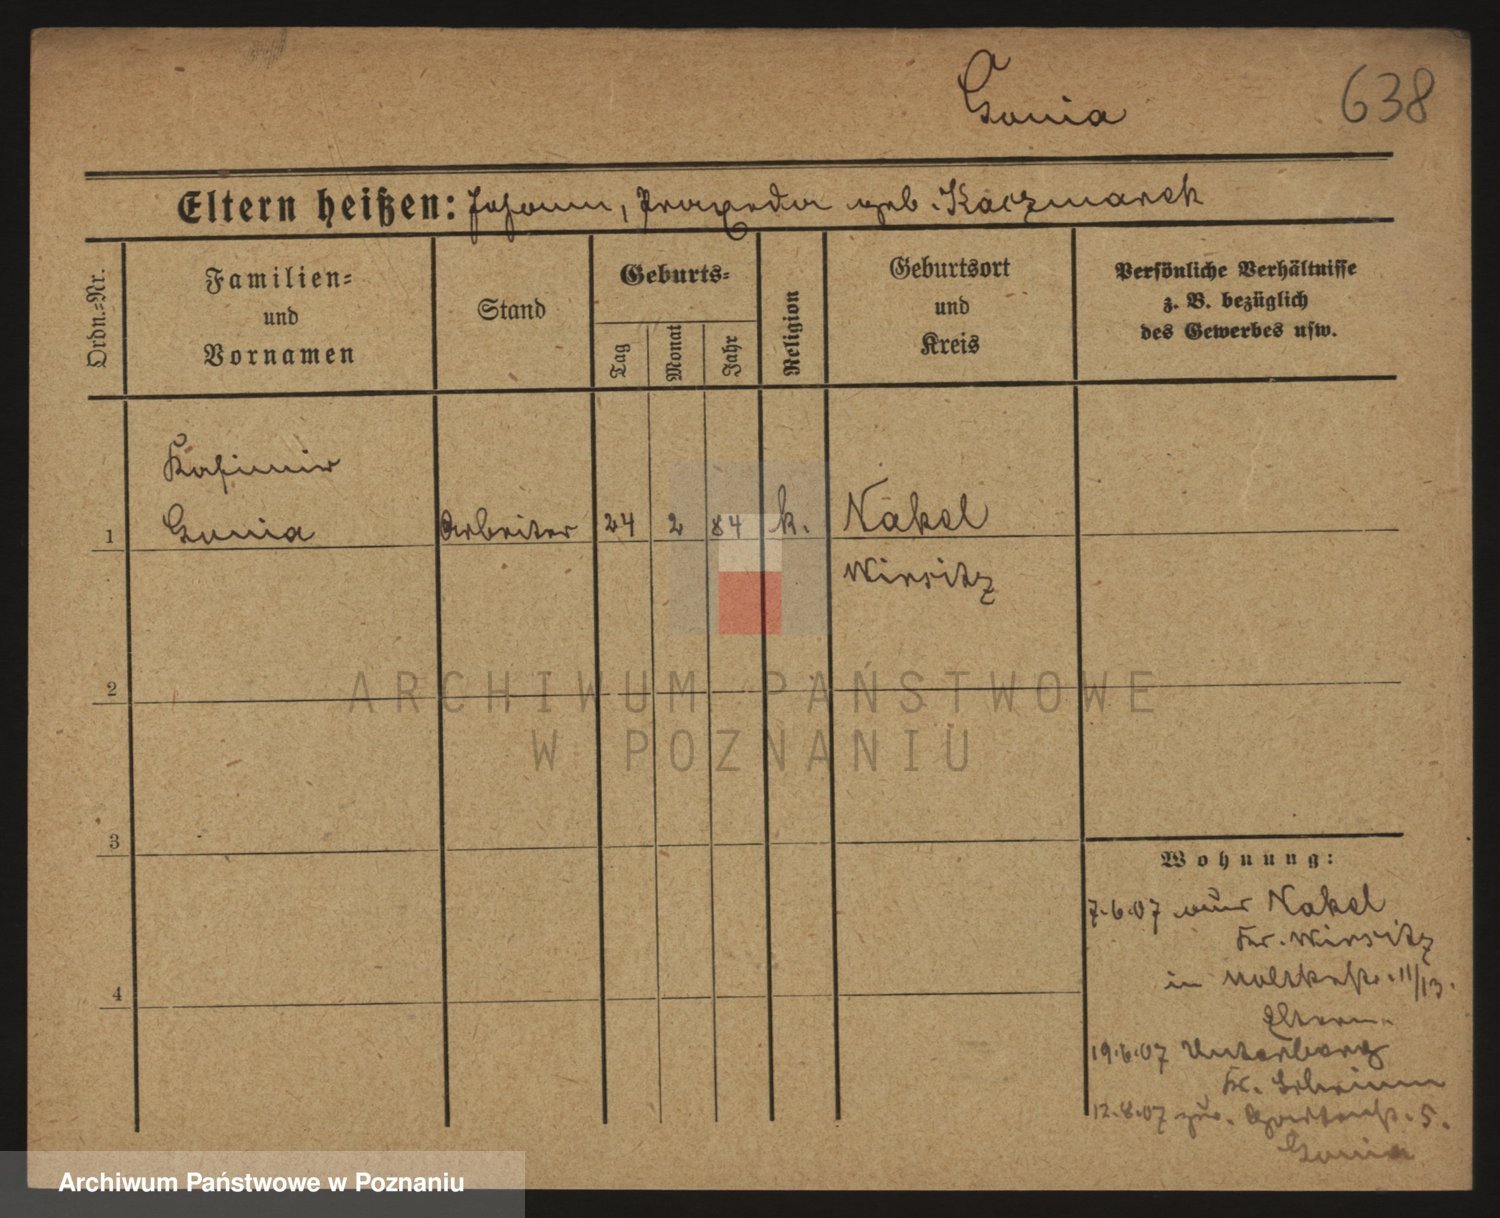 Gonia 638
Eltern heißen: Johann, Praxeda geb. Kaczmarek
Ordn.=Nr.
Familien=
und
Vornamen
Stand
Geburts=
Tag
Monat
Jahr
Religion
Geburtsort
und
Kreis
Persönliche Verhältnisse
z. B. bezüglich
des Gewerbes usw.
Kasimir
1 Gonia Arbeiter 24 2 84 k. Nakel
Wirsitz
2
ARCHIWUM PAŃSTWOWE
W POZNANIU
3
Wohnung:
7.6.07 aus Nakel
Kr. Wirsitz
4
in Moltkestr. 11/13.
Eltern.
19.6.07 Unterberg
Kr. Schrimm
12.8.07 zur. Gartenstr. 5.
Gonia
Archiwum Państwowe w Poznaniu